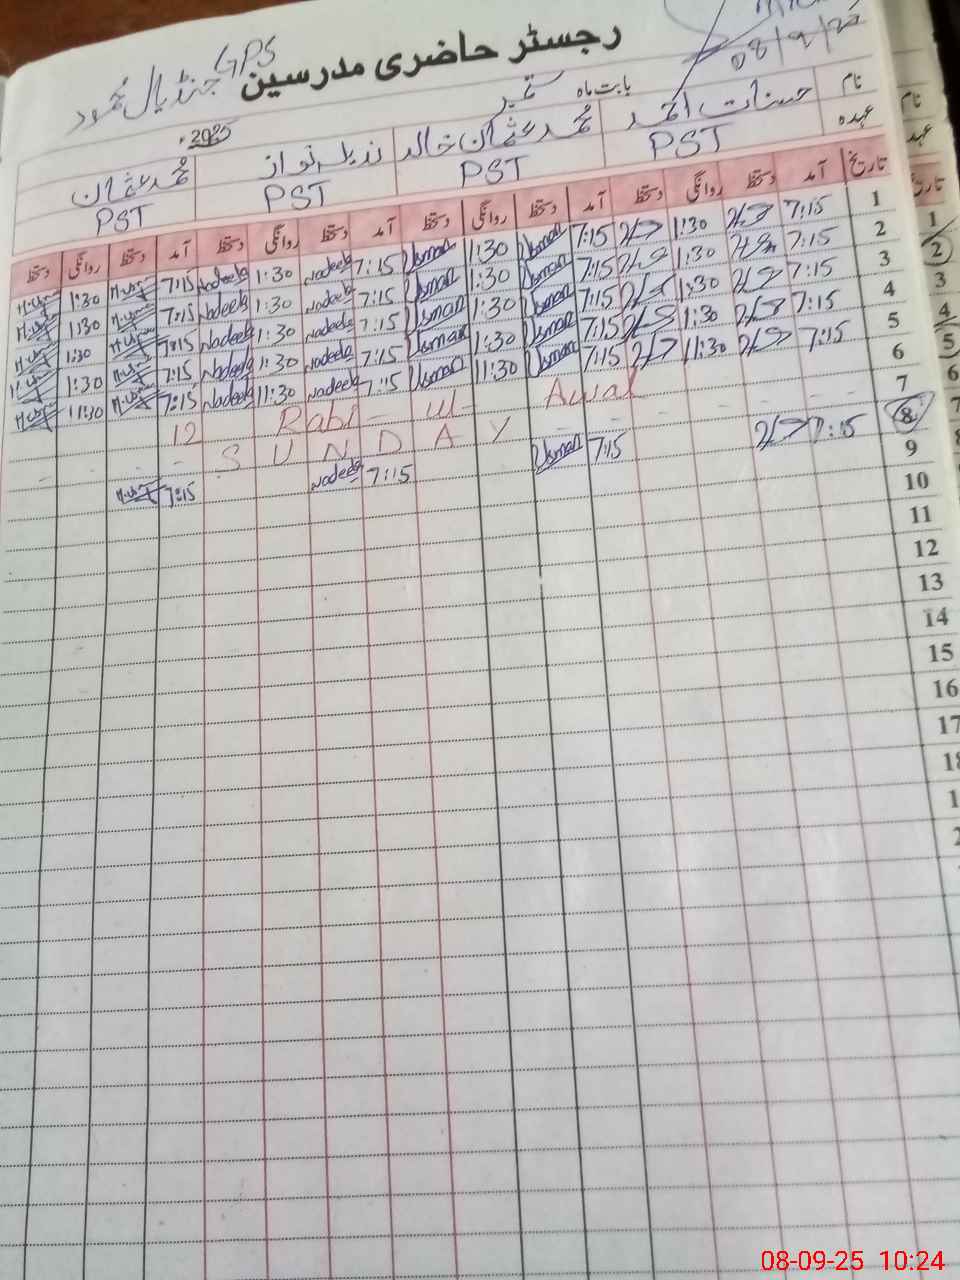 رجسٹر حاضری مدرسین GPS جنڈیال محمود
08/9/25
بابت ماہ ستمبر 2025ء
نام حسنات احمد محمد عثمان خالد ندیل نواز محمد عثمان
عہدہ PST PST PST PST
تاریخ آمد دستخط روانگی دستخط آمد دستخط روانگی دستخط آمد دستخط روانگی دستخط آمد دستخط روانگی دستخط
1 7:15 1:30 7:15 Usman 1:30 Usman 7:15 Nadeela 1:30 Nadeela 7:15 1:30
2 7:15 1:30 7:15 Usman 1:30 Usman 7:15 Nadeela 1:30 Nadeela 7:15 1:30
3 7:15 1:30 7:15 Usman 1:30 Usman 7:15 Nadeela 1:30 Nadeela 7:15 1:30
4 7:15 1:30 7:15 Usman 1:30 Usman 7:15 Nadeela 1:30 Nadeela 7:15 1:30
5 7:15 11:30 7:15 Usman 11:30 Usman 7:15 Nadeela 11:30 Nadeela 7:15 11:30
6 12 Rabi - ul - Awal
7 - - - S U N D A Y - - - - - -
8 7:15 7:15 Usman 7:15 Nadeela 7:15
9
10
11
12
13
14
15
16
17
نام
تاریخ
1
2
3
4
5
6
7
08-09-25 10:24